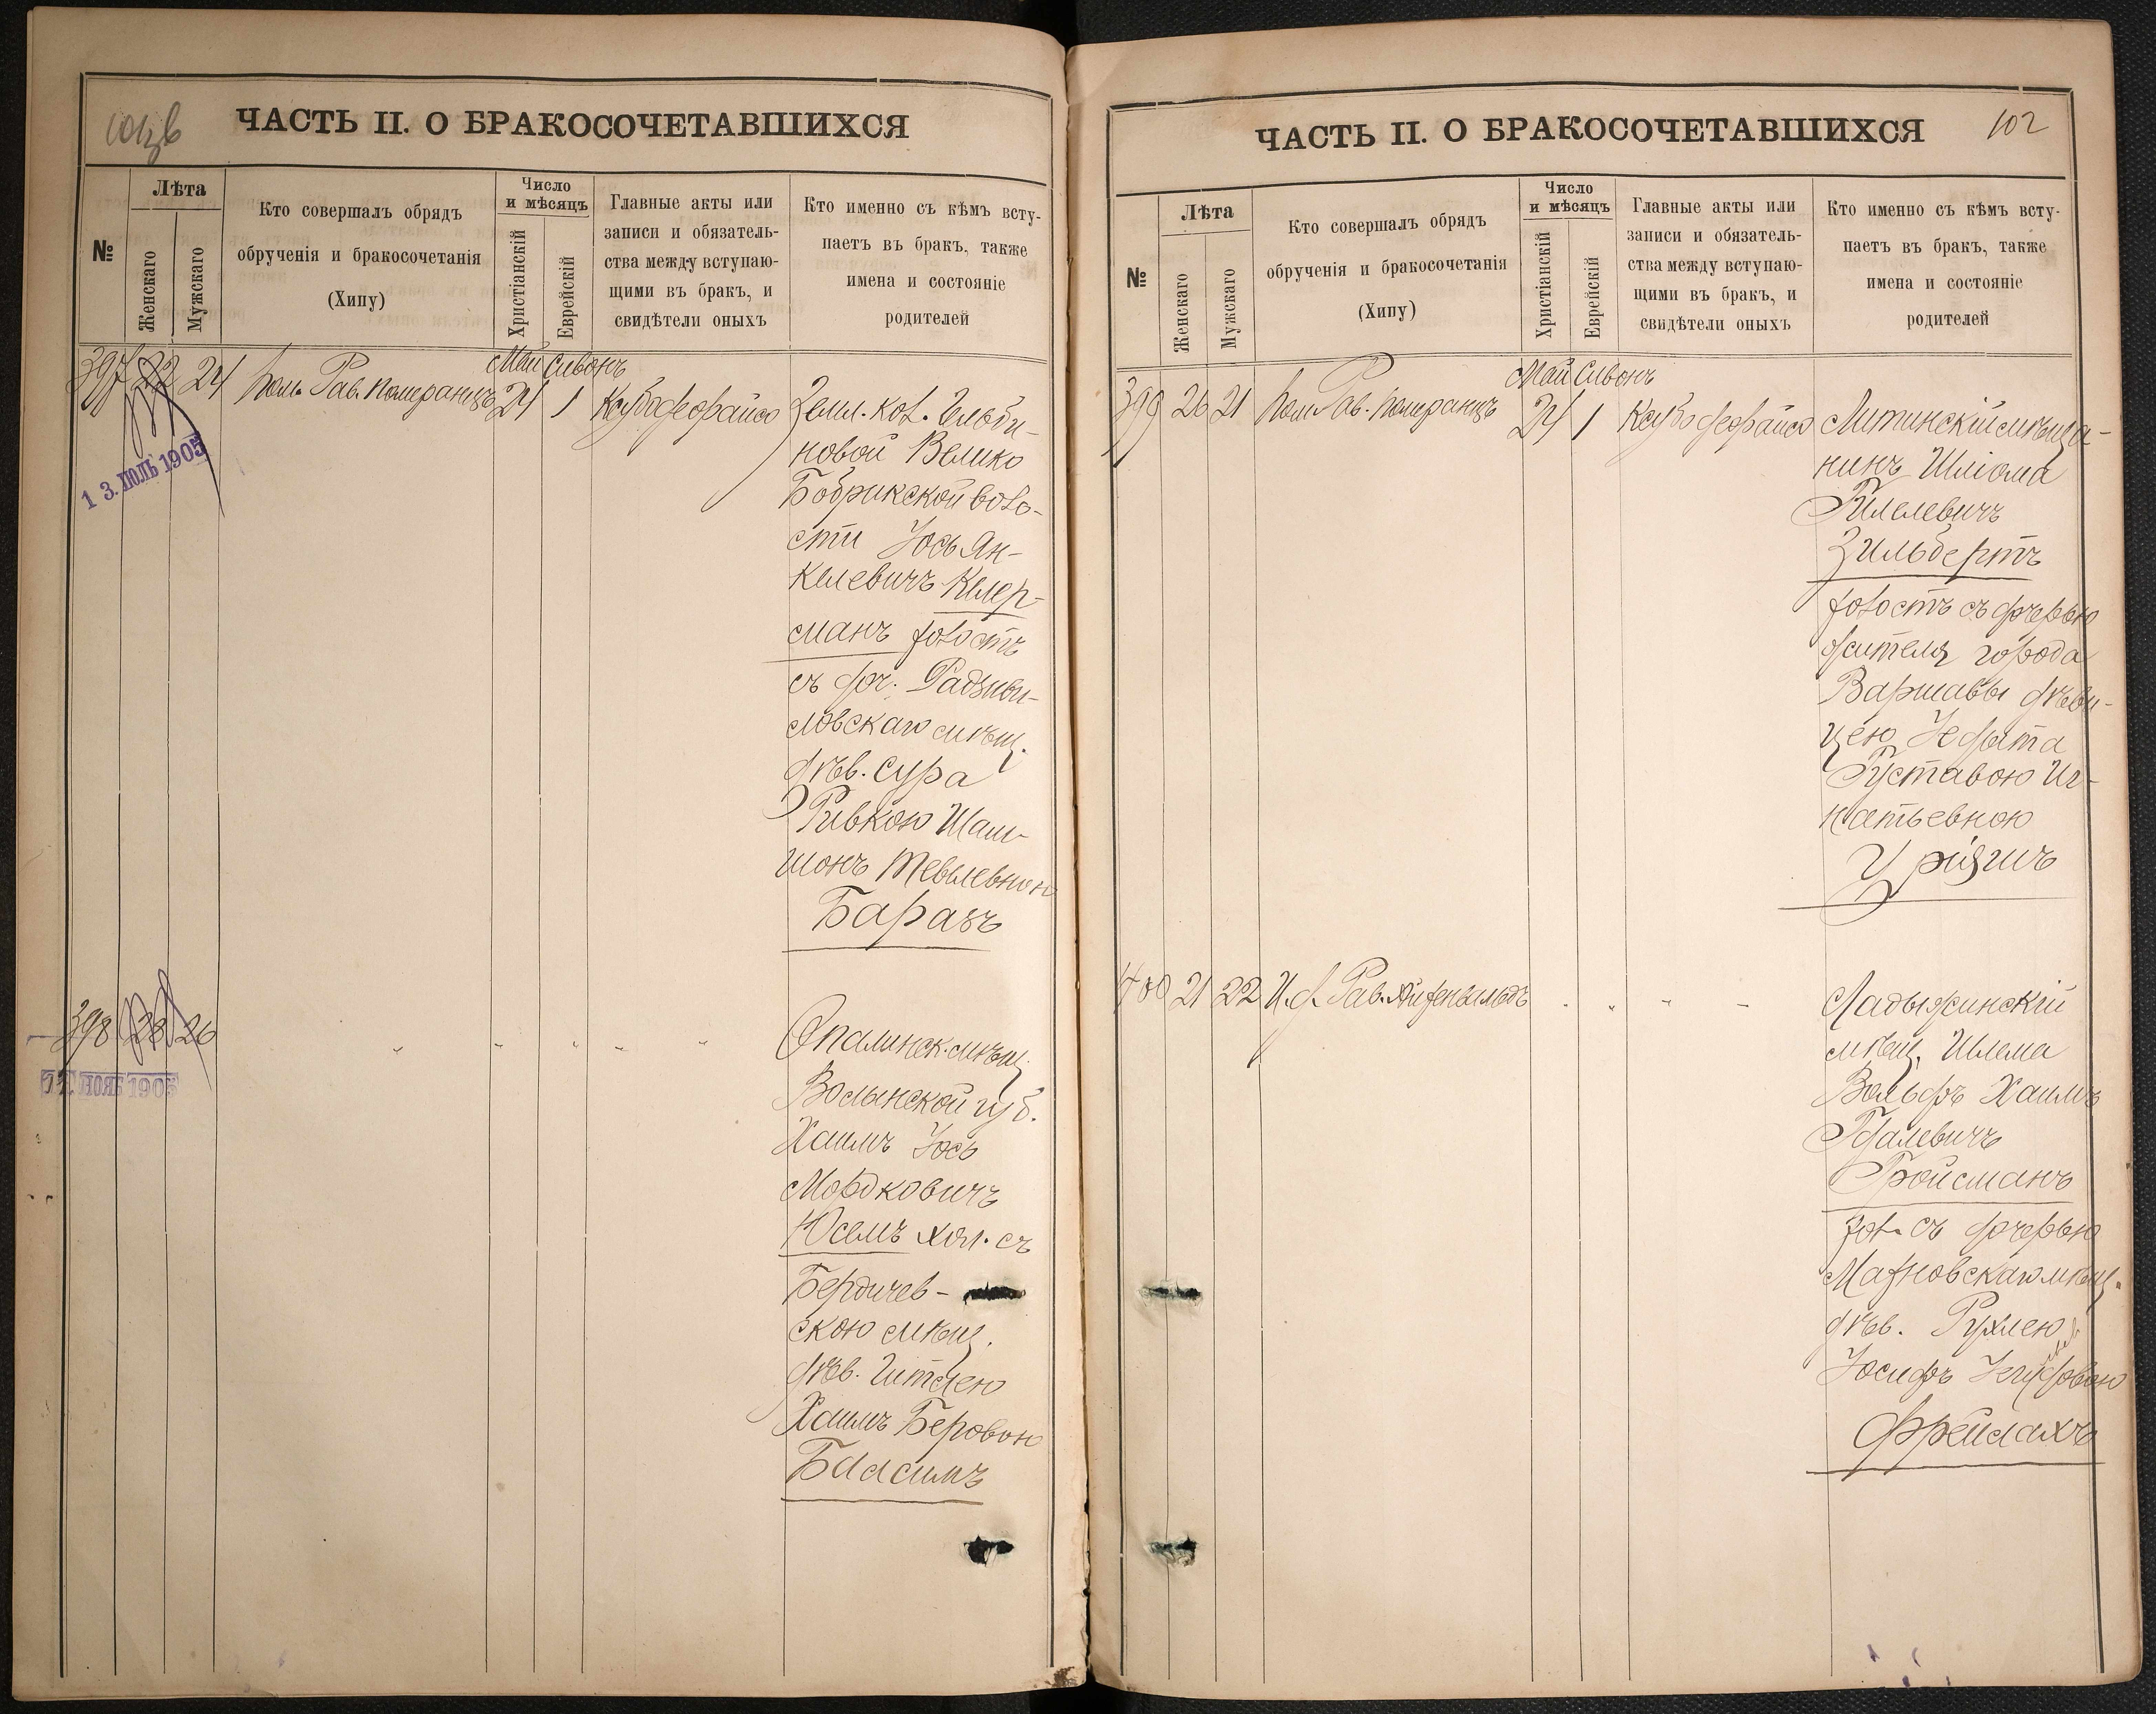 ЧАСТЬ II. О БРАКОСОЧЕТАВШИХСЯ
№
Лѣта
Женскаго
Мужскаго
Кто совершалъ обрядъ
обрученія и бракосочетанія
(Хипу)
Число
и мѣсяцъ
Христіанскій
Еврейскій
Главные акты или
записи и обязатель-
ства между вступаю-
щими въ бракъ, и
свидѣтели оныхъ
Кто именно съ кѣмъ всту-
паетъ въ бракъ, также
имена и состояніе
родителей
397 22 24 Пом. Рав. Померанцъ
Май Сивонъ
24 1
13. ІЮЛЬ 1905
Земл. кол.
новой Велико
Бобрикской воло-
сти Іось Ян-
келевичъ Келер-
манъ холостъ
съ доч. Радзиви-
ловскаго мѣщ.
дѣв. Сура
Ривкою Шам-
шонъ Тевелевною
Баразъ
398 28 26
НОЯБ 1905
Опалинск. мѣщ.
Волынской губ.
Хаимъ Іось
Мордковичъ
Юсемъ хол. съ
Бердичев-
скою мѣщ.
дѣв. Гитлею
Хаимъ Беровою
ЧАСТЬ II. О БРАКОСОЧЕТАВШИХСЯ
102
№
Лѣта
Женскаго
Мужскаго
Кто совершалъ обрядъ
обрученія и бракосочетанія
(Хипу)
Число
и мѣсяцъ
Христіанскій
Еврейскій
Главные акты или
записи и обязатель-
ства между вступаю-
щими въ бракъ, и
свидѣтели оныхъ
Кто именно съ кѣмъ всту-
паетъ въ бракъ, также
имена и состояніе
родителей
399 20 21 Пом. Рав. Померанцъ
Май Сивонъ
24 1
Литинскій мѣща-
нинъ Шліома
Гилелевичъ
Зильбертъ
холостъ съ дочерью
жителя города
Варшавы дѣви-
цею
Густавою Иг-
натьевною
400 21 22 И. д. Рав.
Ладыжинскій
мѣщ. Шлема
Вольфъ Хаимъ
Гдалевичъ
Гройсманъ
хол. съ дочерью
Махновскаго мѣщ.
дѣв. Рухлею
Іосифъ
Фрейлахъ